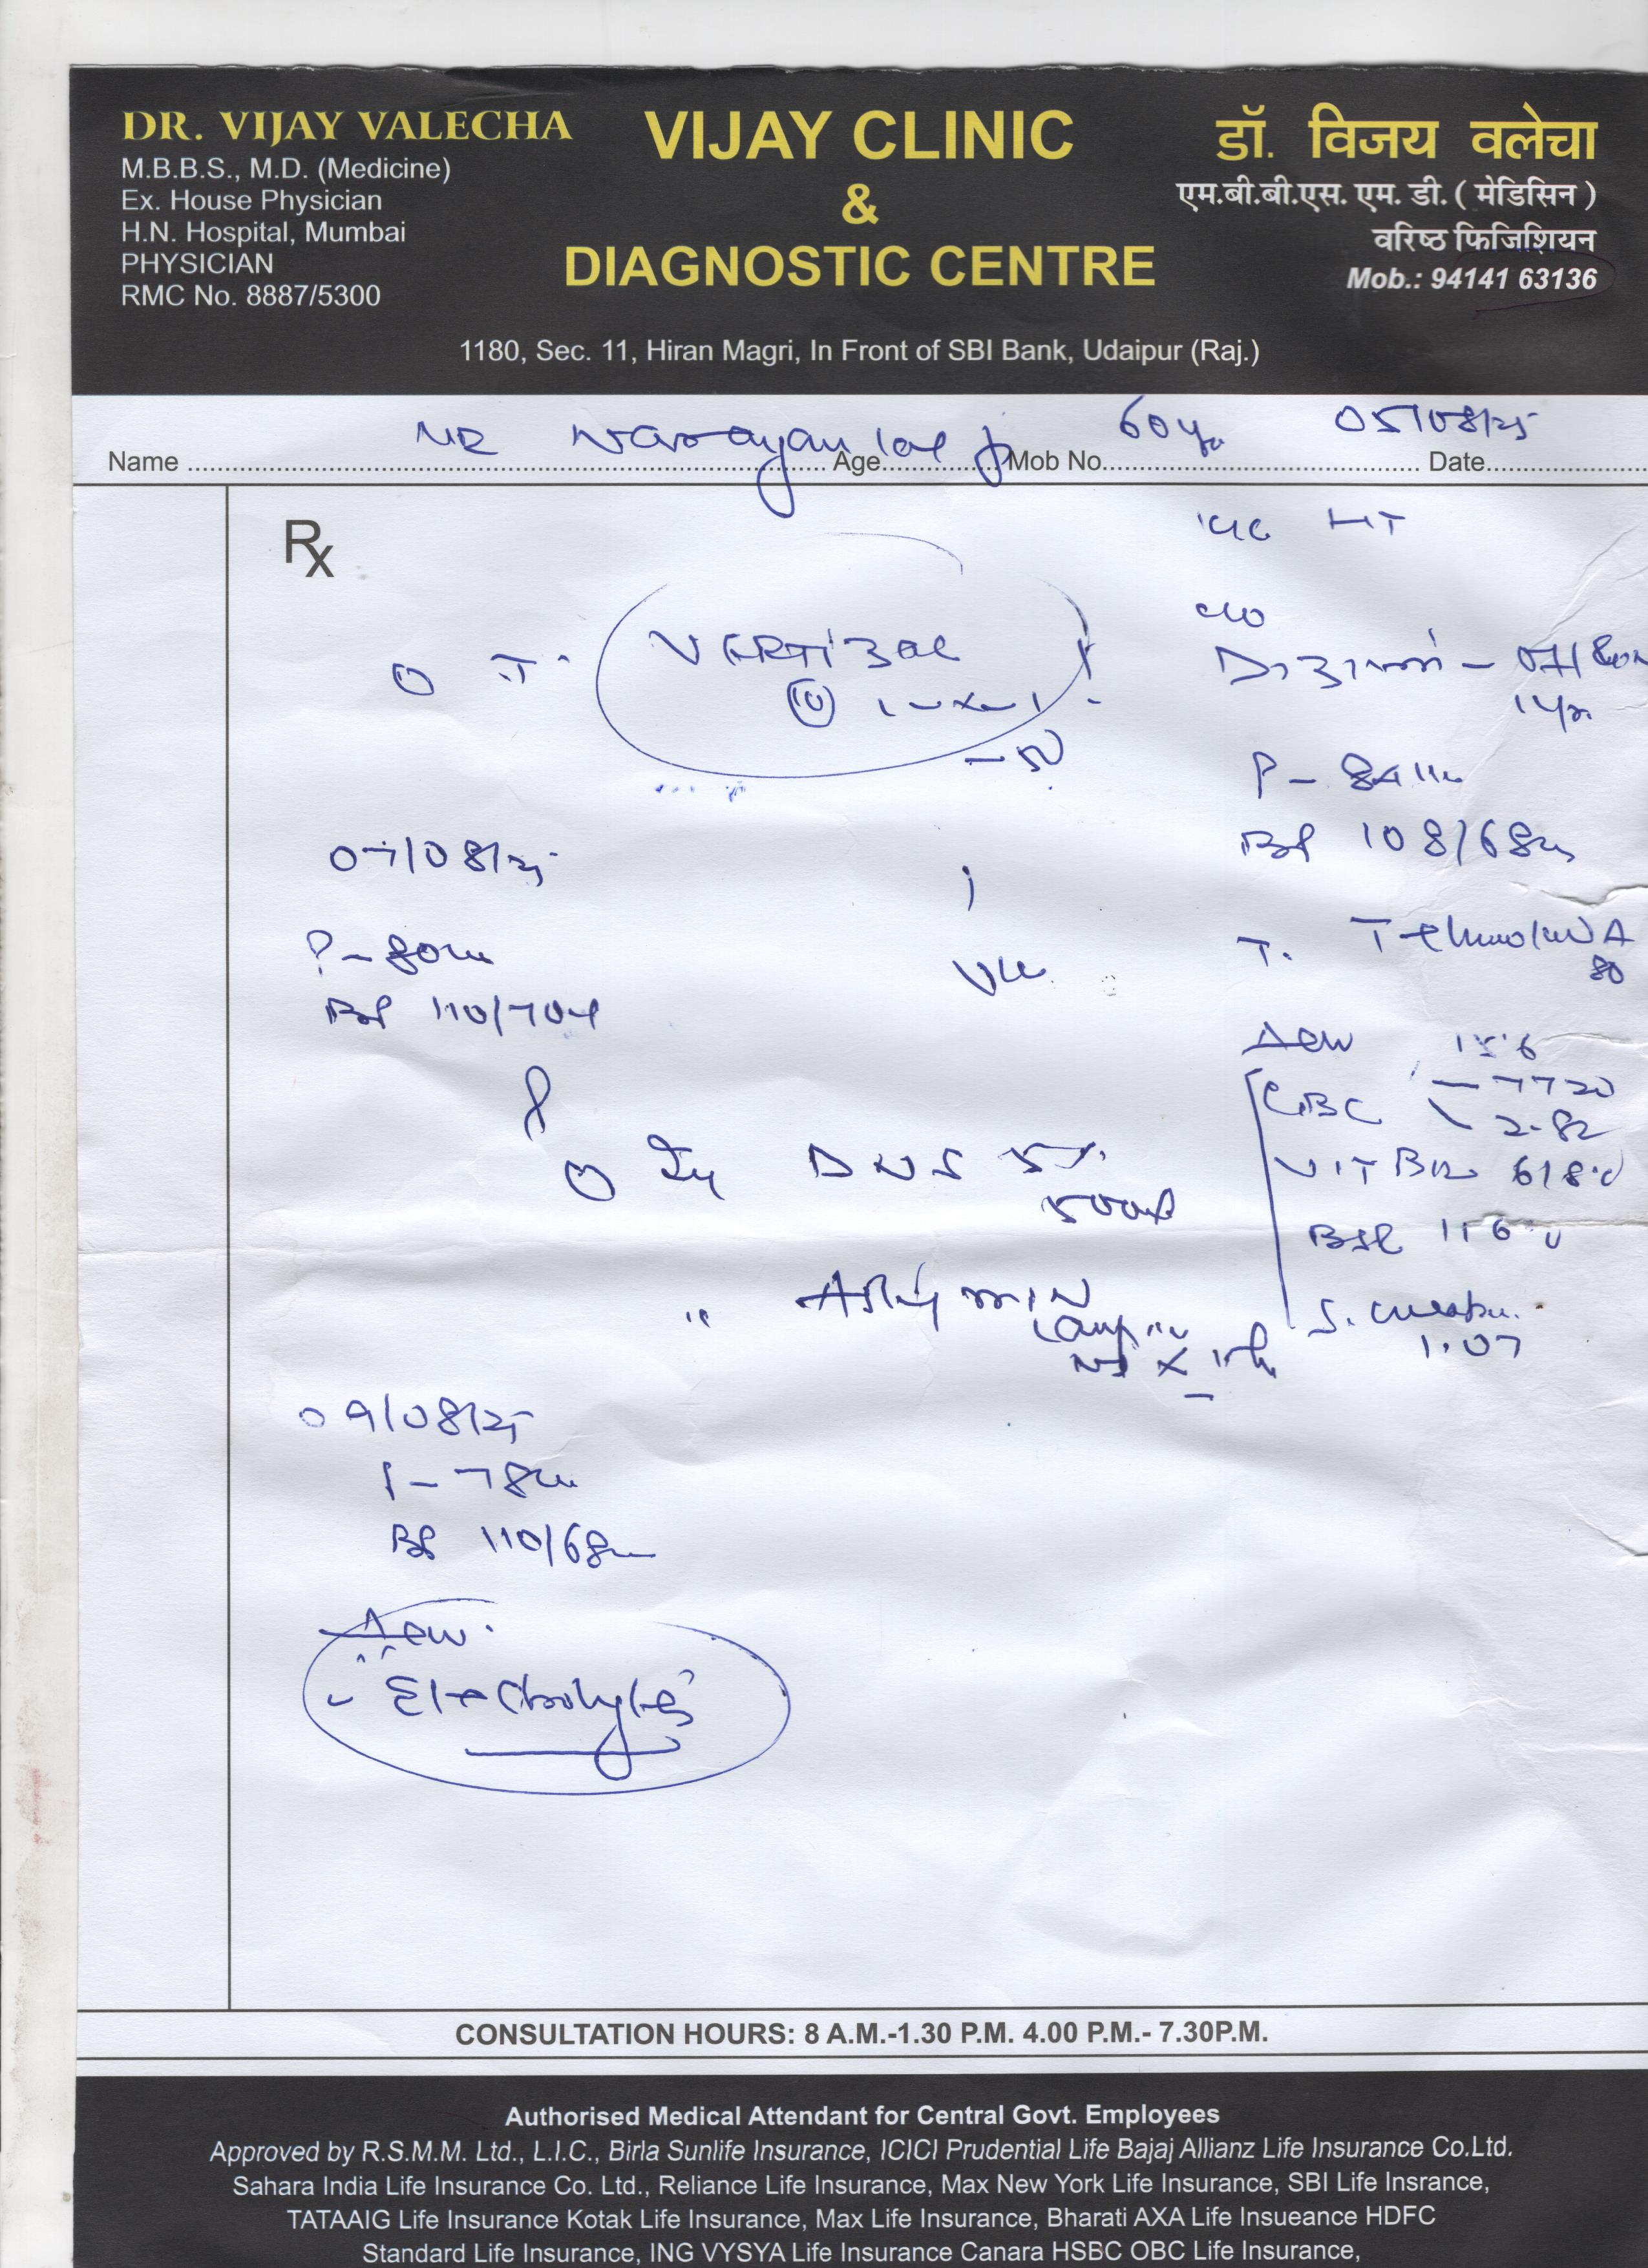 DR. VIJAY VALECHA
M.B.B.S., M.D. (Medicine)
Ex. House Physician
H.N. Hospital, Mumbai
PHYSICIAN
RMC No. 8887/5300
VIJAY CLINIC
&
DIAGNOSTIC CENTRE
डॉ. विजय वलेचा
एम.बी.बी.एस. एम. डी. ( मेडिसिन )
वरिष्ठ फिजिशियन
Mob.: 94141 63136
1180, Sec. 11, Hiran Magri, In Front of SBI Bank, Udaipur (Raj.)
Name Age Mob No. Date
MR Narayan lal 60 05/08/25
Rx
HT
c/o
T. VERTIZAC
10
P - 84
BP 108/68
07/08/25
P - 80
BP 110/70
T.
80
Adv 15.6
CBC - 7720
2.82
VIT B12 618
Inj DNS 5%
500
BSR 116
"
S. 
1.07
09/08/25
P - 78
BP 110/68
Adv.
Electrolytes
CONSULTATION HOURS: 8 A.M.-1.30 P.M. 4.00 P.M.- 7.30P.M.
Authorised Medical Attendant for Central Govt. Employees
Approved by R.S.M.M. Ltd., L.I.C., Birla Sunlife Insurance, ICICI Prudential Life Bajaj Allianz Life Insurance Co.Ltd.
Sahara India Life Insurance Co. Ltd., Reliance Life Insurance, Max New York Life Insurance, SBI Life Insrance,
TATAAIG Life Insurance Kotak Life Insurance, Max Life Insurance, Bharati AXA Life Insueance HDFC
Standard Life Insurance, ING VYSYA Life Insurance Canara HSBC OBC Life Insurance,